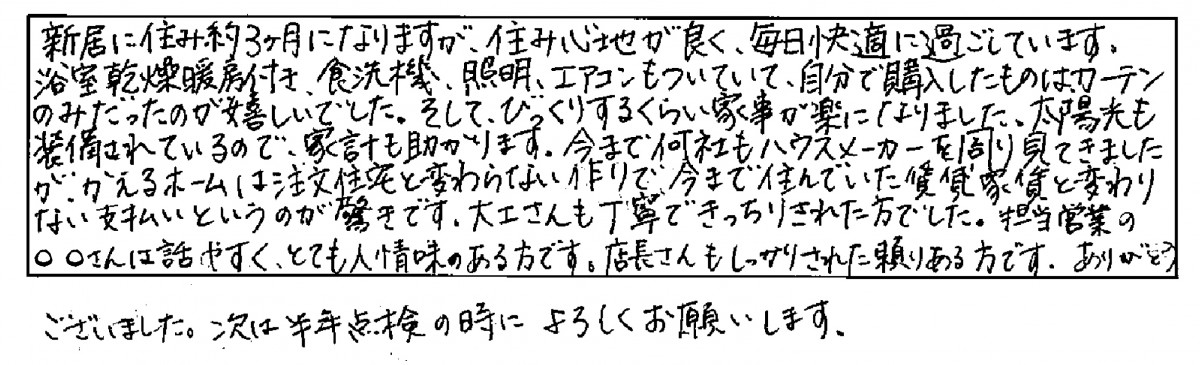 新居に住み約3ヶ月になりますが、住み心地が良く、毎日快適に過ごしています。
浴室乾燥暖房付き、食洗機、照明、エアコンもついていて、自分で購入したものはカーテン
のみだったのが嬉しいでした。そして、びっくりするくらい家事が楽になりました、太陽光も
装備されているので、家計も助かります。今まで何社もハウスメーカーを周り見てきました
が、かえるホームは注文住宅と変わらない作りで、今まで住んでいた賃貸家賃と変わり
ない支払いというのが驚きです、大工さんも丁寧できっちりされた方でした。担当営業の
○○さんは話やすく、とても人情味のある方です。店長さんもしっかりされた頼りある方です。ありがとう
ございました。次は半年点検の時によろしくお願いします。